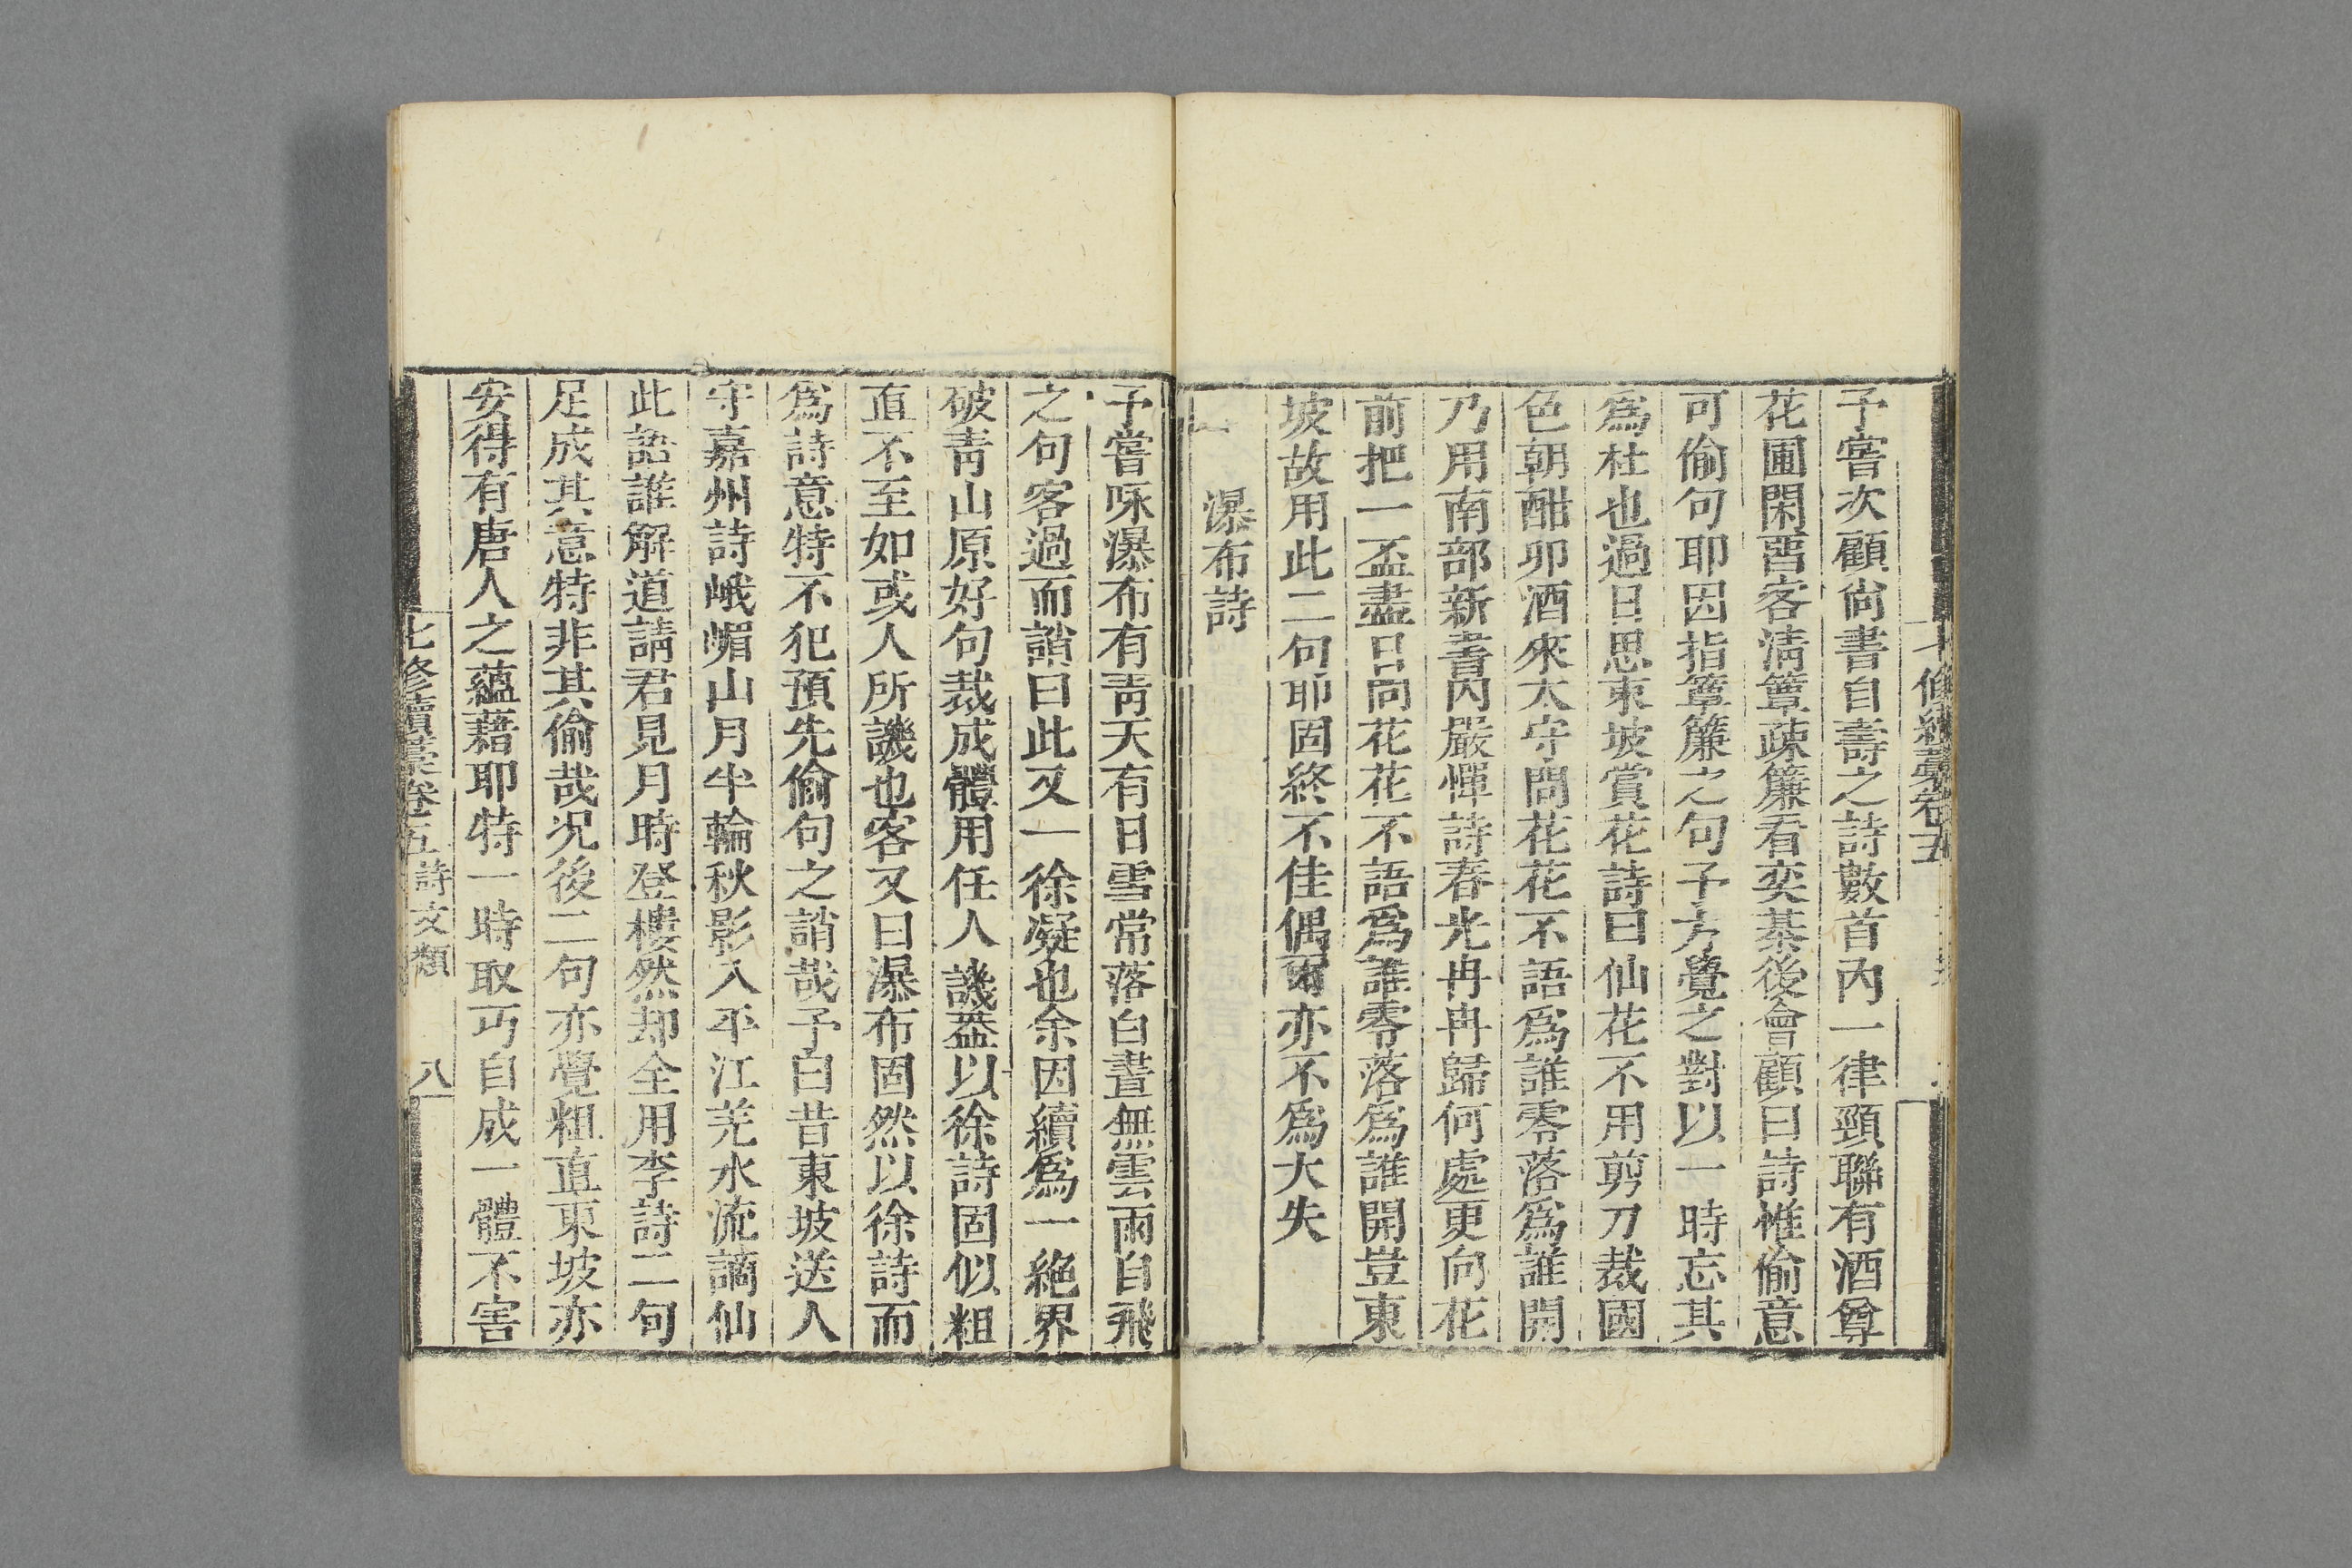 七修續藁卷五
予嘗次顧尚書自壽之詩數首內一律頸聯有酒尊
花圃閑畱客清簟疎簾看奕棊後會顧曰詩惟偷意
可偷句耶因指簟簾之句予方覺之對以一時忘其
爲杜也過日思東坡賞花詩曰仙花不用剪刀裁國
色朝酣卯酒來太守問花花不語爲誰零落爲誰開
乃用南部新書內嚴惲詩春光冉冉歸何處更向花
前把一盃盡日問花花不語爲誰零落爲誰開豈東
坡故用此二句耶固終不佳偶爾亦不爲大失
瀑布詩
予嘗咏瀑布有青天有日雪常落白晝無雲雨自飛
之句客過而誚曰此又一徐凝也余因續爲一絶界
破青山原好句裁成體用任人譏葢以徐詩固似粗
直不至如或人所譏也客又曰瀑布固然以徐詩而
爲詩意特不犯預先偷句之誚哉予曰昔東坡送人
守嘉州詩峨嵋山月半輪秋影入平江羌水流謫仙
此語誰解道請君見月時登樓然却全用李詩二句
足成其意特非其偷哉况後二句亦覺粗直東坡亦
安得有唐人之蘊藉耶特一時取巧自成一體不害
七修續藁卷五 詩文類 八